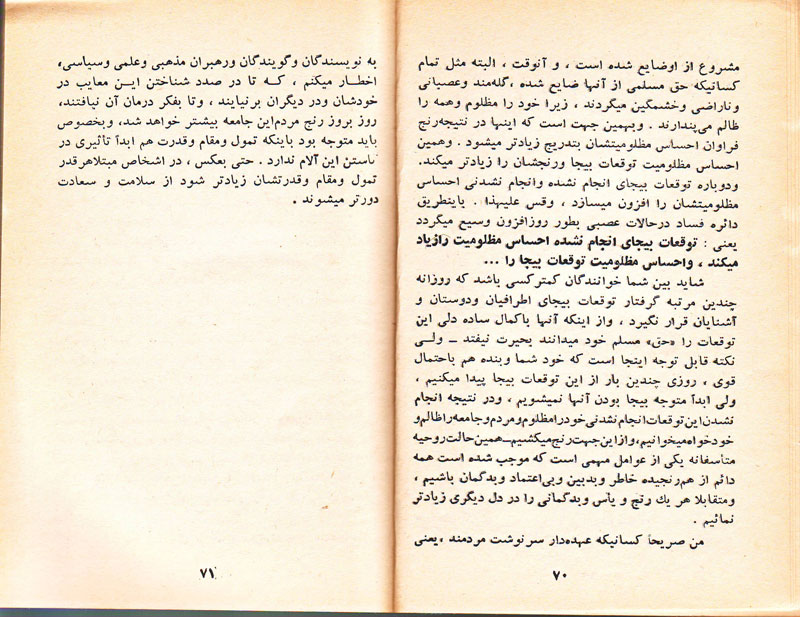 مشروع از اوضایع شده است ، و آنوقت ، البته مثل تمام
کسانیکه حق مسلمی از آنها ضایع شده ،گله‌مند وعصیانی
وناراضی وخشمگین میگردند ، زیرا خود را مظلوم وهمه را
ظالم می‌پندارند . وبهمین جهت است که اینها در نتیجه‌رنج
فراوان احساس مظلومیتشان بتدریج زیادتر میشود . وهمین
احساس مظلومیت توقعات بیجا ورنجشان را زیادتر میکند.
ودوباره توقعات بیجای انجام نشده وانجام نشدنی احساس
مظلومیتشان را افزون میسازد ، وقس علیهذا . باینطریق
دائره فساد درحالات عصبی بطور روزافزون وسیع میگردد
یعنی : توقعات بیجای انجام نشده احساس مظلومیت رازیاد
میکند ، واحساس مظلومیت توقعات بیجا را ...
شاید بین شما خوانندگان کمترکسی باشد که روزانه
چندین مرتبه گرفتار توقعات بیجای اطرافیان ودوستان و
آشنایان قرار نگیرد ، واز اینکه آنها باکمال ساده دلی این
توقعات را «حق» مسلم خود میدانند بحیرت نیفتد ــ ولی
نکته قابل توجه اینجا است که خود شما وبنده هم باحتمال
قوی ، روزی چندین بار از این توقعات بیجا پیدا میکنیم ،
ولی ابداً متوجه بیجا بودن آنها نمیشویم ، ودر نتیجه انجام
نشدن‌این‌توقعات‌انجام‌نشدنی‌خودرامظلوم‌ومردم‌وجامعه‌راظالم‌و
خودخواه‌میخوانیم،وازاین‌جهت‌رنج‌میکشیم‌ــ‌همین‌حالت‌روحیه
متأسفانه یکی از عوامل مهمی است که موجب شده است همه
دائم از هم‌رنجیده خاطر وبدبین وبی‌اعتماد وبدگمان باشیم ،
ومتقابلا هر یك رنج و یأس وبدگمانی را در دل دیگری زیادتر
نمائیم .
من صریحاً کسانیکه عهده‌دار سرنوشت مردمند ،یعنی
۷۰
به نویسندگان وگویندگان ورهبران مذهبی وعلمی وسیاسی،
اخطار میکنم ، کـه تا در صدد شناختن ایـن معایب در
خودشان ودر دیگران برنیایند ، وتا بفکر درمان آن نیافتند،
روز بروز رنج مردم‌این جامعه بیشتر خواهد شد، وبخصوص
باید متوجه بود باینکه تمول ومقام وقدرت هم ابدآ تأثیری در
این آلام ندارد . حتی بعکس ، در اشخاص مبتلاهرقدر
تمول ومقام وقدرتشان زیادتر شود از سلامت و سعادت
دورتر میشوند .
۷۱